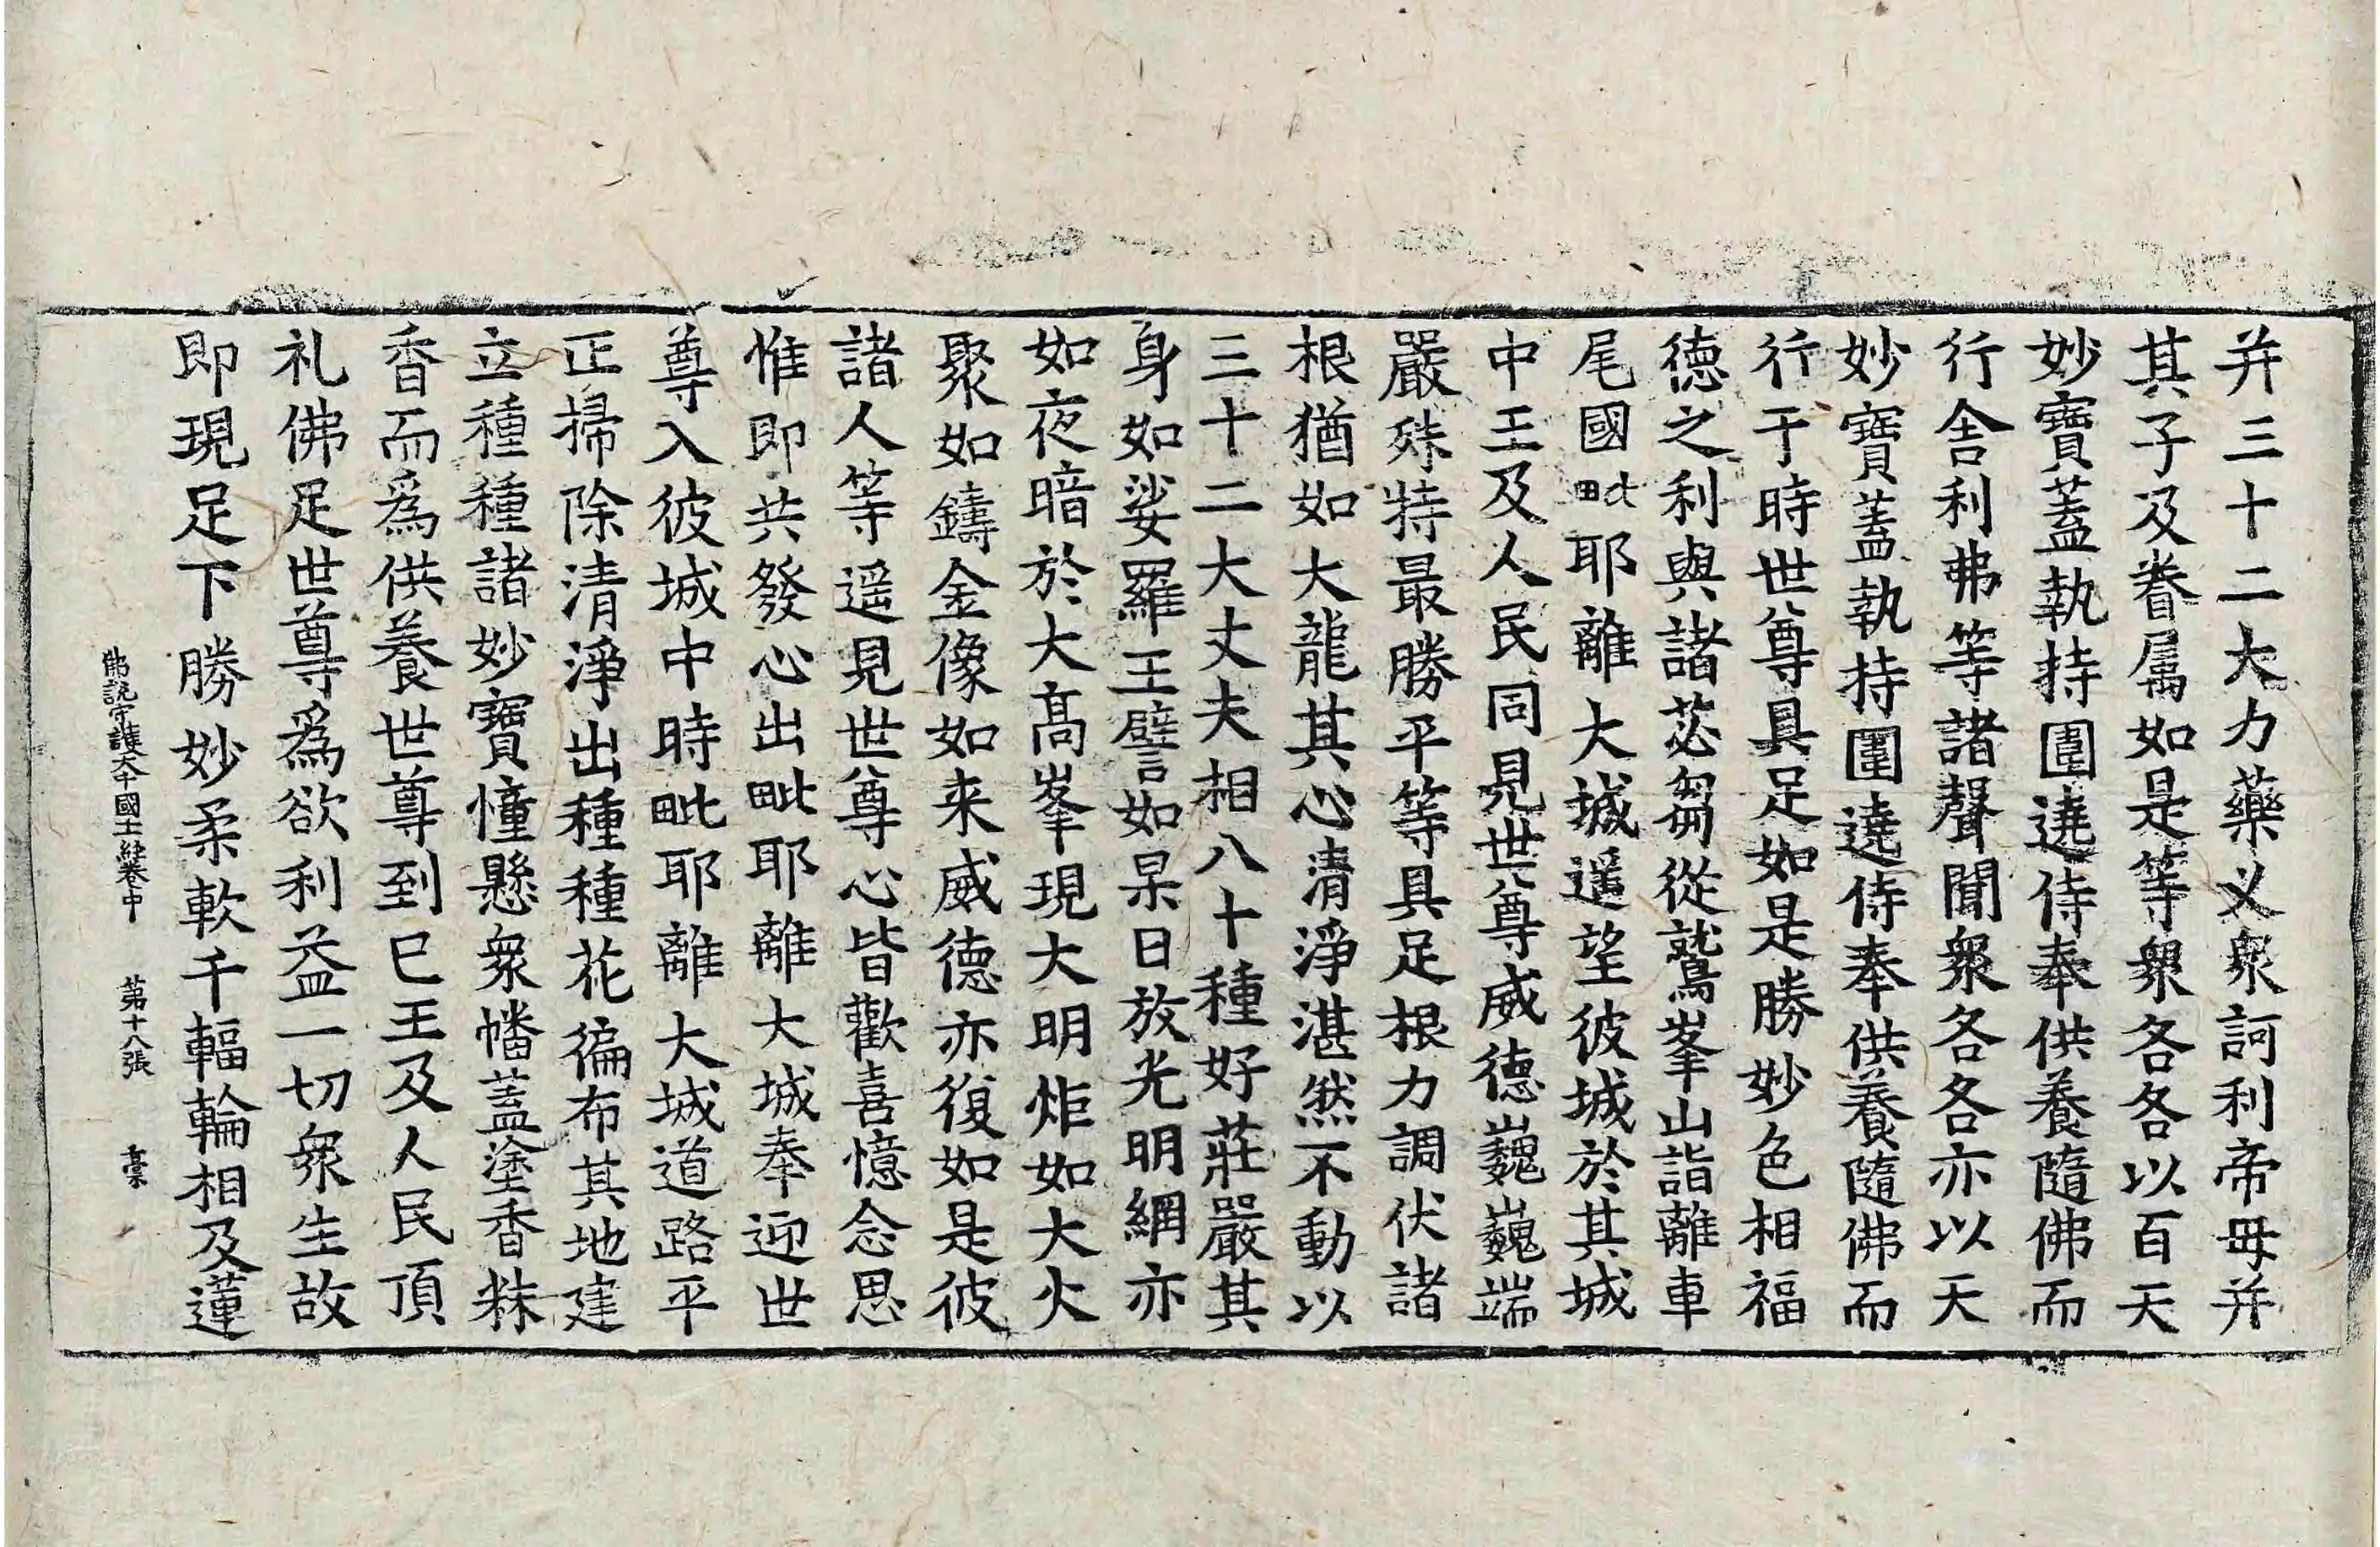 并三十二大力藥义衆訶利帝母并
其子及眷属如是等衆各各以百天
妙寶蓋執持圍遶侍奉供養隨佛而
行舎利弗等諸聲聞衆各各亦以天
妙寶蓋執持圍遶侍奉供養隨佛而
行于時世尊具足如是勝妙色相福
德之利與諸苾芻從鷲峯山詣離車
尾國毗耶離大城遥望彼城於其城
中王及人民同見世尊威德巍巍端
嚴殊特最勝平等具足根力調伏諸
根猶如大龍其心清淨湛然不動以
三十二大丈夫相八十種好莊嚴其
身如娑羅王譬如杲日放光明網亦
如夜暗於大高峯現大明炬如大火
聚如鑄金像如来威德亦復如是彼
諸人等遥見世尊心皆歡喜憶念思
惟即共發心出毗耶離大城奉迎世
尊入彼城中時毗耶離大城道路平
正掃除清淨出種種花徧布其地建
立種種諸妙寶幢懸衆幡蓋塗香粖
香而爲供養世尊到已王及人民頂
礼佛足世尊爲欲利益一切衆生故
即現足下勝妙柔軟千輻輪相及蓮
佛說守護大千國土經卷中 第十八張 槀